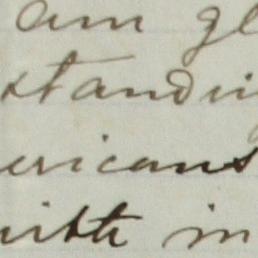 am gl
standin
ericans
with in